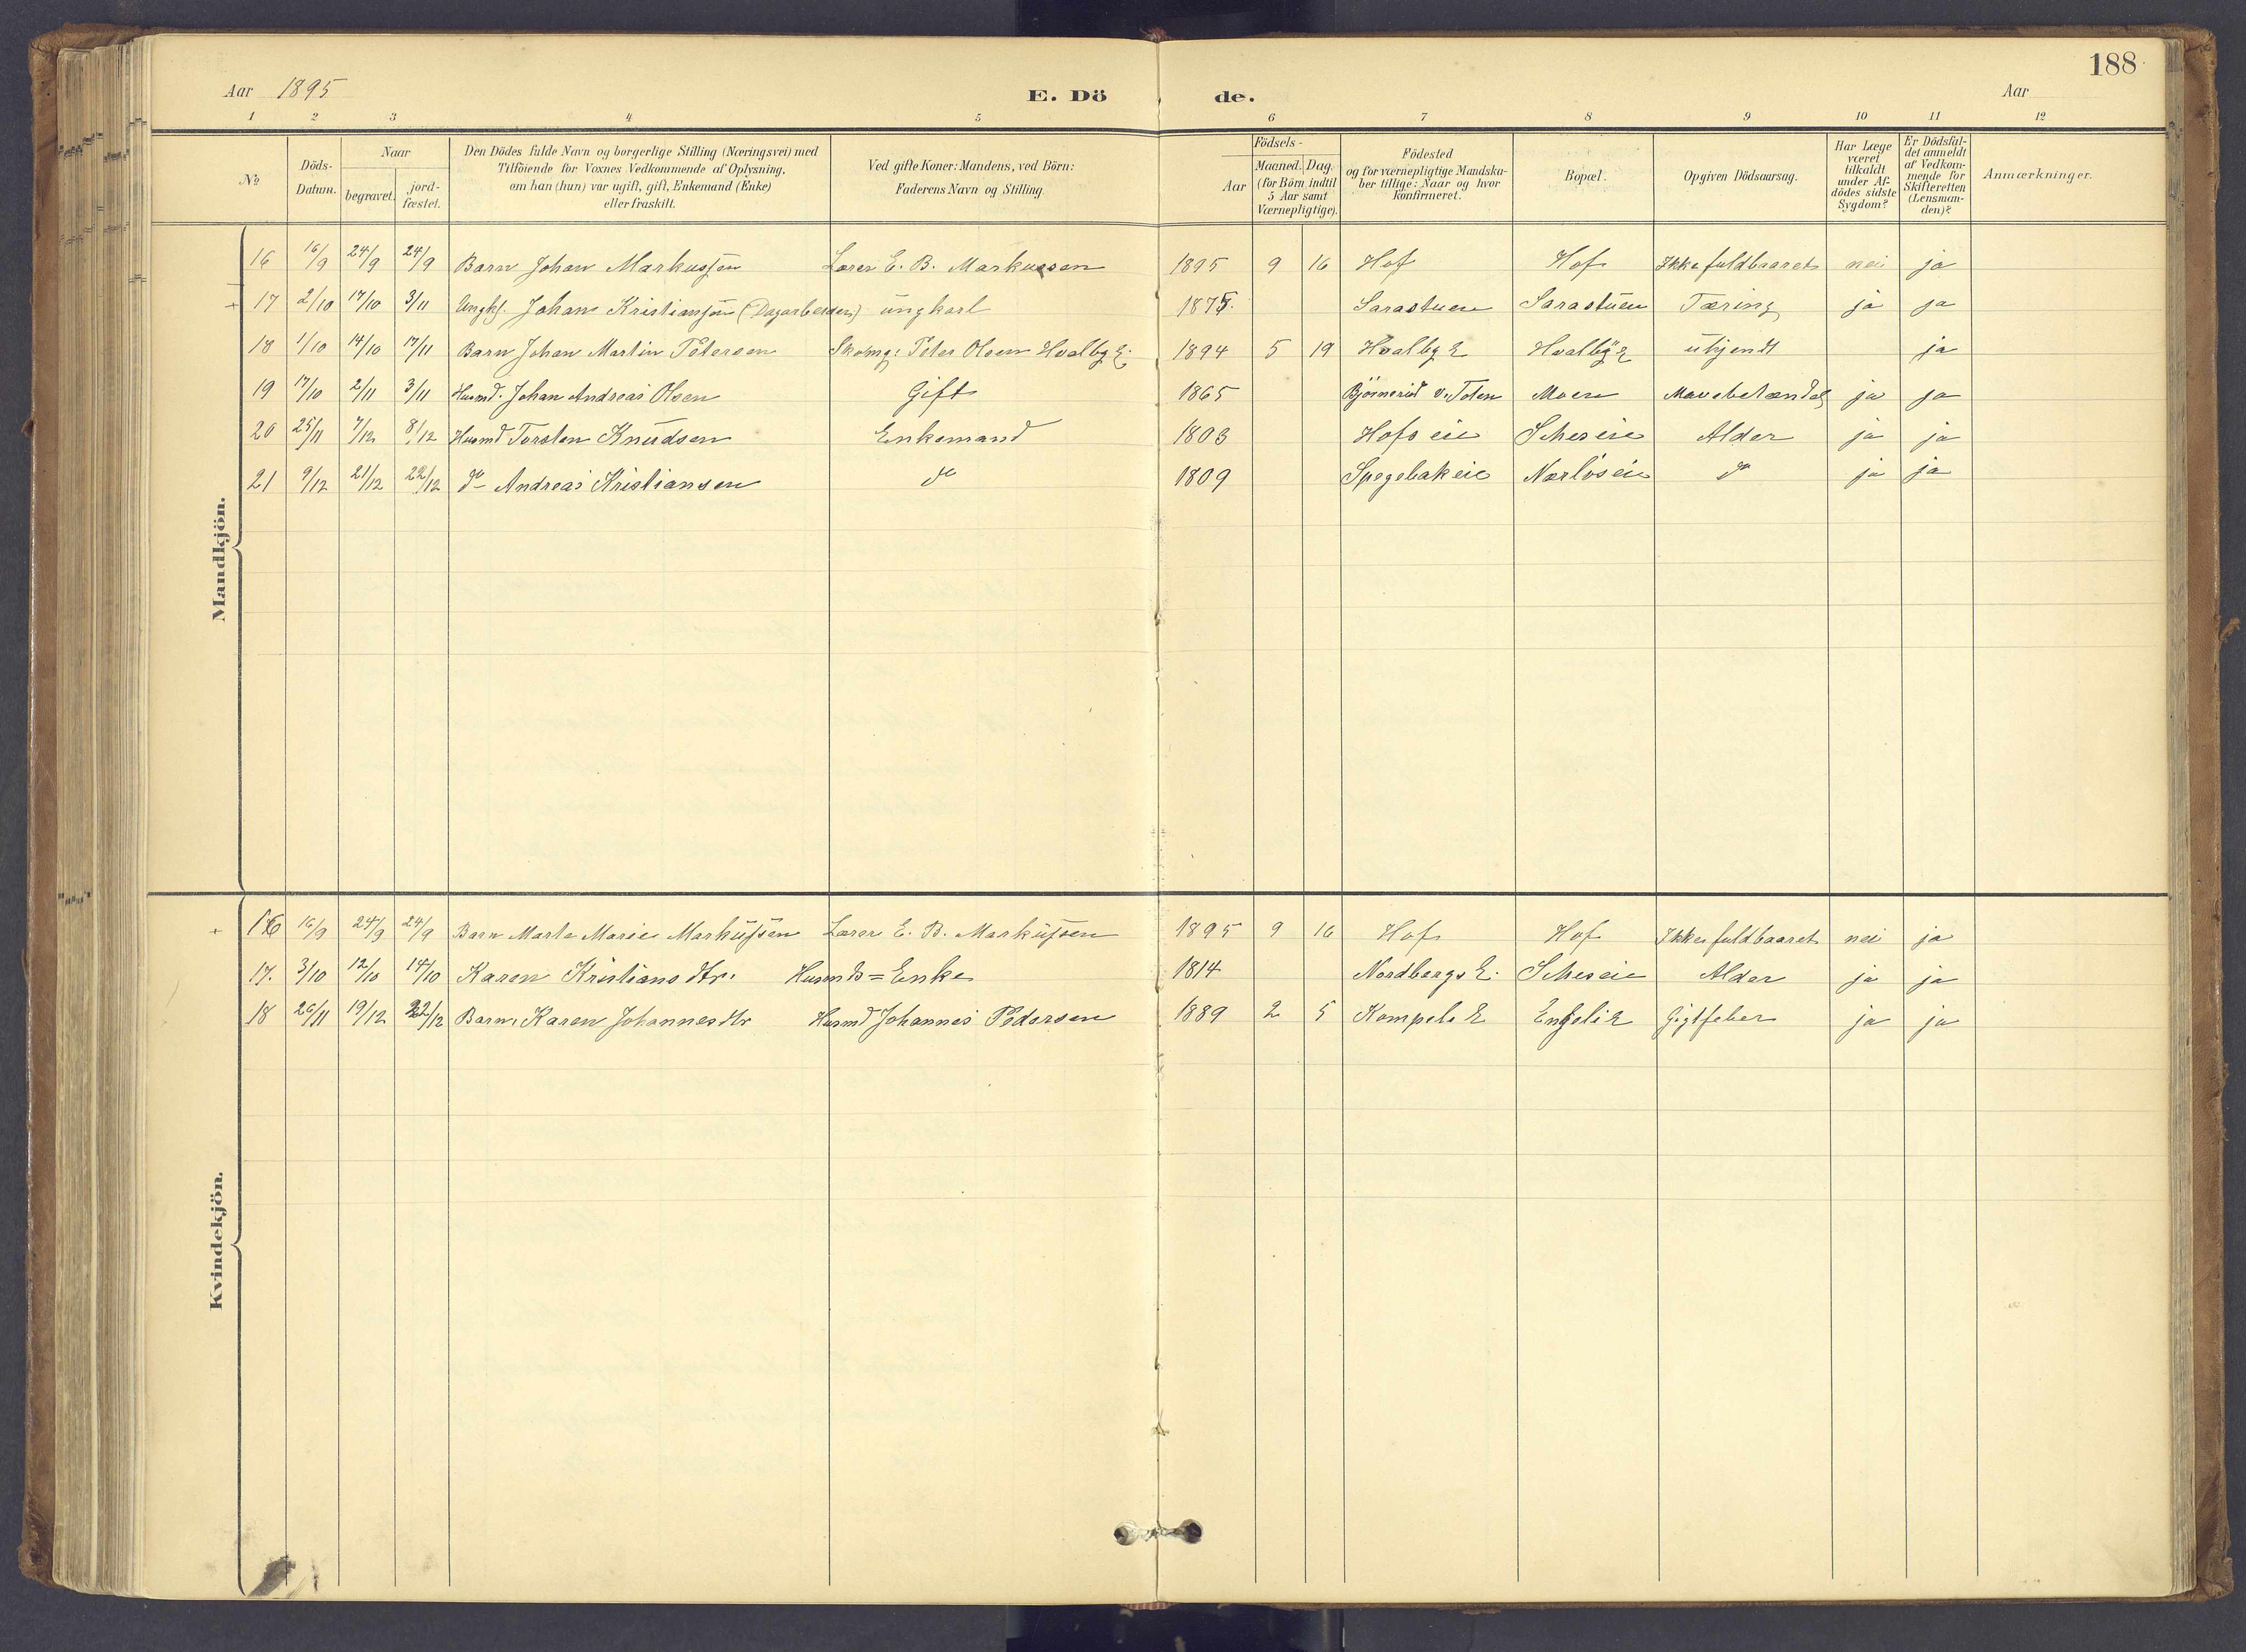 188
Aar 1895 E. Dö de. Aar
1 2 3 4 5 6 7 8 9 10 11 12
No
Döds-Datum.
Naar
begravet.
jord-fæstet.
Den Dödes fulde Navn og borgerlige Stilling (Næringsvei) med
Tilföiende for Voxnes Vedkommende af Oplysning,
om han (hun) var ugift, gift, Enkemand (Enke)
eller fraskilt.
Ved gifte Koner: Mandens, ved Börn:
Faderens Navn og Stilling.
Födsels-
Aar
Maaned. Dag.
(for Börn indtil
5 Aar samt
Værnepligtige).
Födested
og for værnepligtige Mandska-
ber tillige: Naar og hvor
konfirmeret.
Bopæl.
Opgiven Dödsaarsag.
Har Læge
været
tilkaldt
under Af-
dödes sidste
Sygdom?
Er Dödsfal-
det anmeldt
af Vedkom-
mende for
Skifteretten
(Lensman-
den)?
Anmærkninger.
Mandkjön.
16 16/9 24/9 24/9 Barn Johan Markussen Lærer E. B. Markussen 1895 9 16 Hof Hof Ikke fuldbaaret nei ja
+ 17 2/10 17/10 3/11 Ungk. Johan Kristiansen (Dagarbeider) ungkarl 1875. Sarastuen Sarastuen Tæring ja ja
18 1/10 14/10 17/11 Barn Johan Martin Petersen Skomg: Peter Olsen Hvalby E. 1894 5 19 Hvalby E Hvalby E ukjendt ja
19 17/10 2/11 3/11 Husmd. Johan Andreas Olsen Gift 1865 Björnerud v. Toten Moen Mavebetændels ja ja
20 25/11 7/12 8/12 Husmd Torsten Knudsen Enkemand 1803 Hofs eie Sches eie Alder ja ja
21 9/12 21/12 22/12 do Andreas Kristiansen do 1809 Spegebakeie Narlös eie do ja ja
Kvindekjön.
+ 16 16/9 24/9 24/9 Barn Marte Marie Markussen Lærer E. B. Markussen 1895 9 16 Hof Hof Ikke fuldbaaret nei ja
17. 3/10 12/10 14/10 Karen Kristiansdtr. Husmds=Enke 1814 Nordbergs E. Scheseie Alder ja ja
18 26/11 19/12 22/12 Barn, Karen Johannesdtr Husmd Johannes Pedersen 1889 2 5 Kompels E Engeli E Gigtfeber ja ja